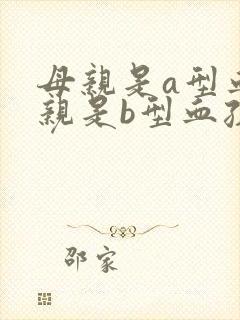 母親是a型
親是b型血
邵家